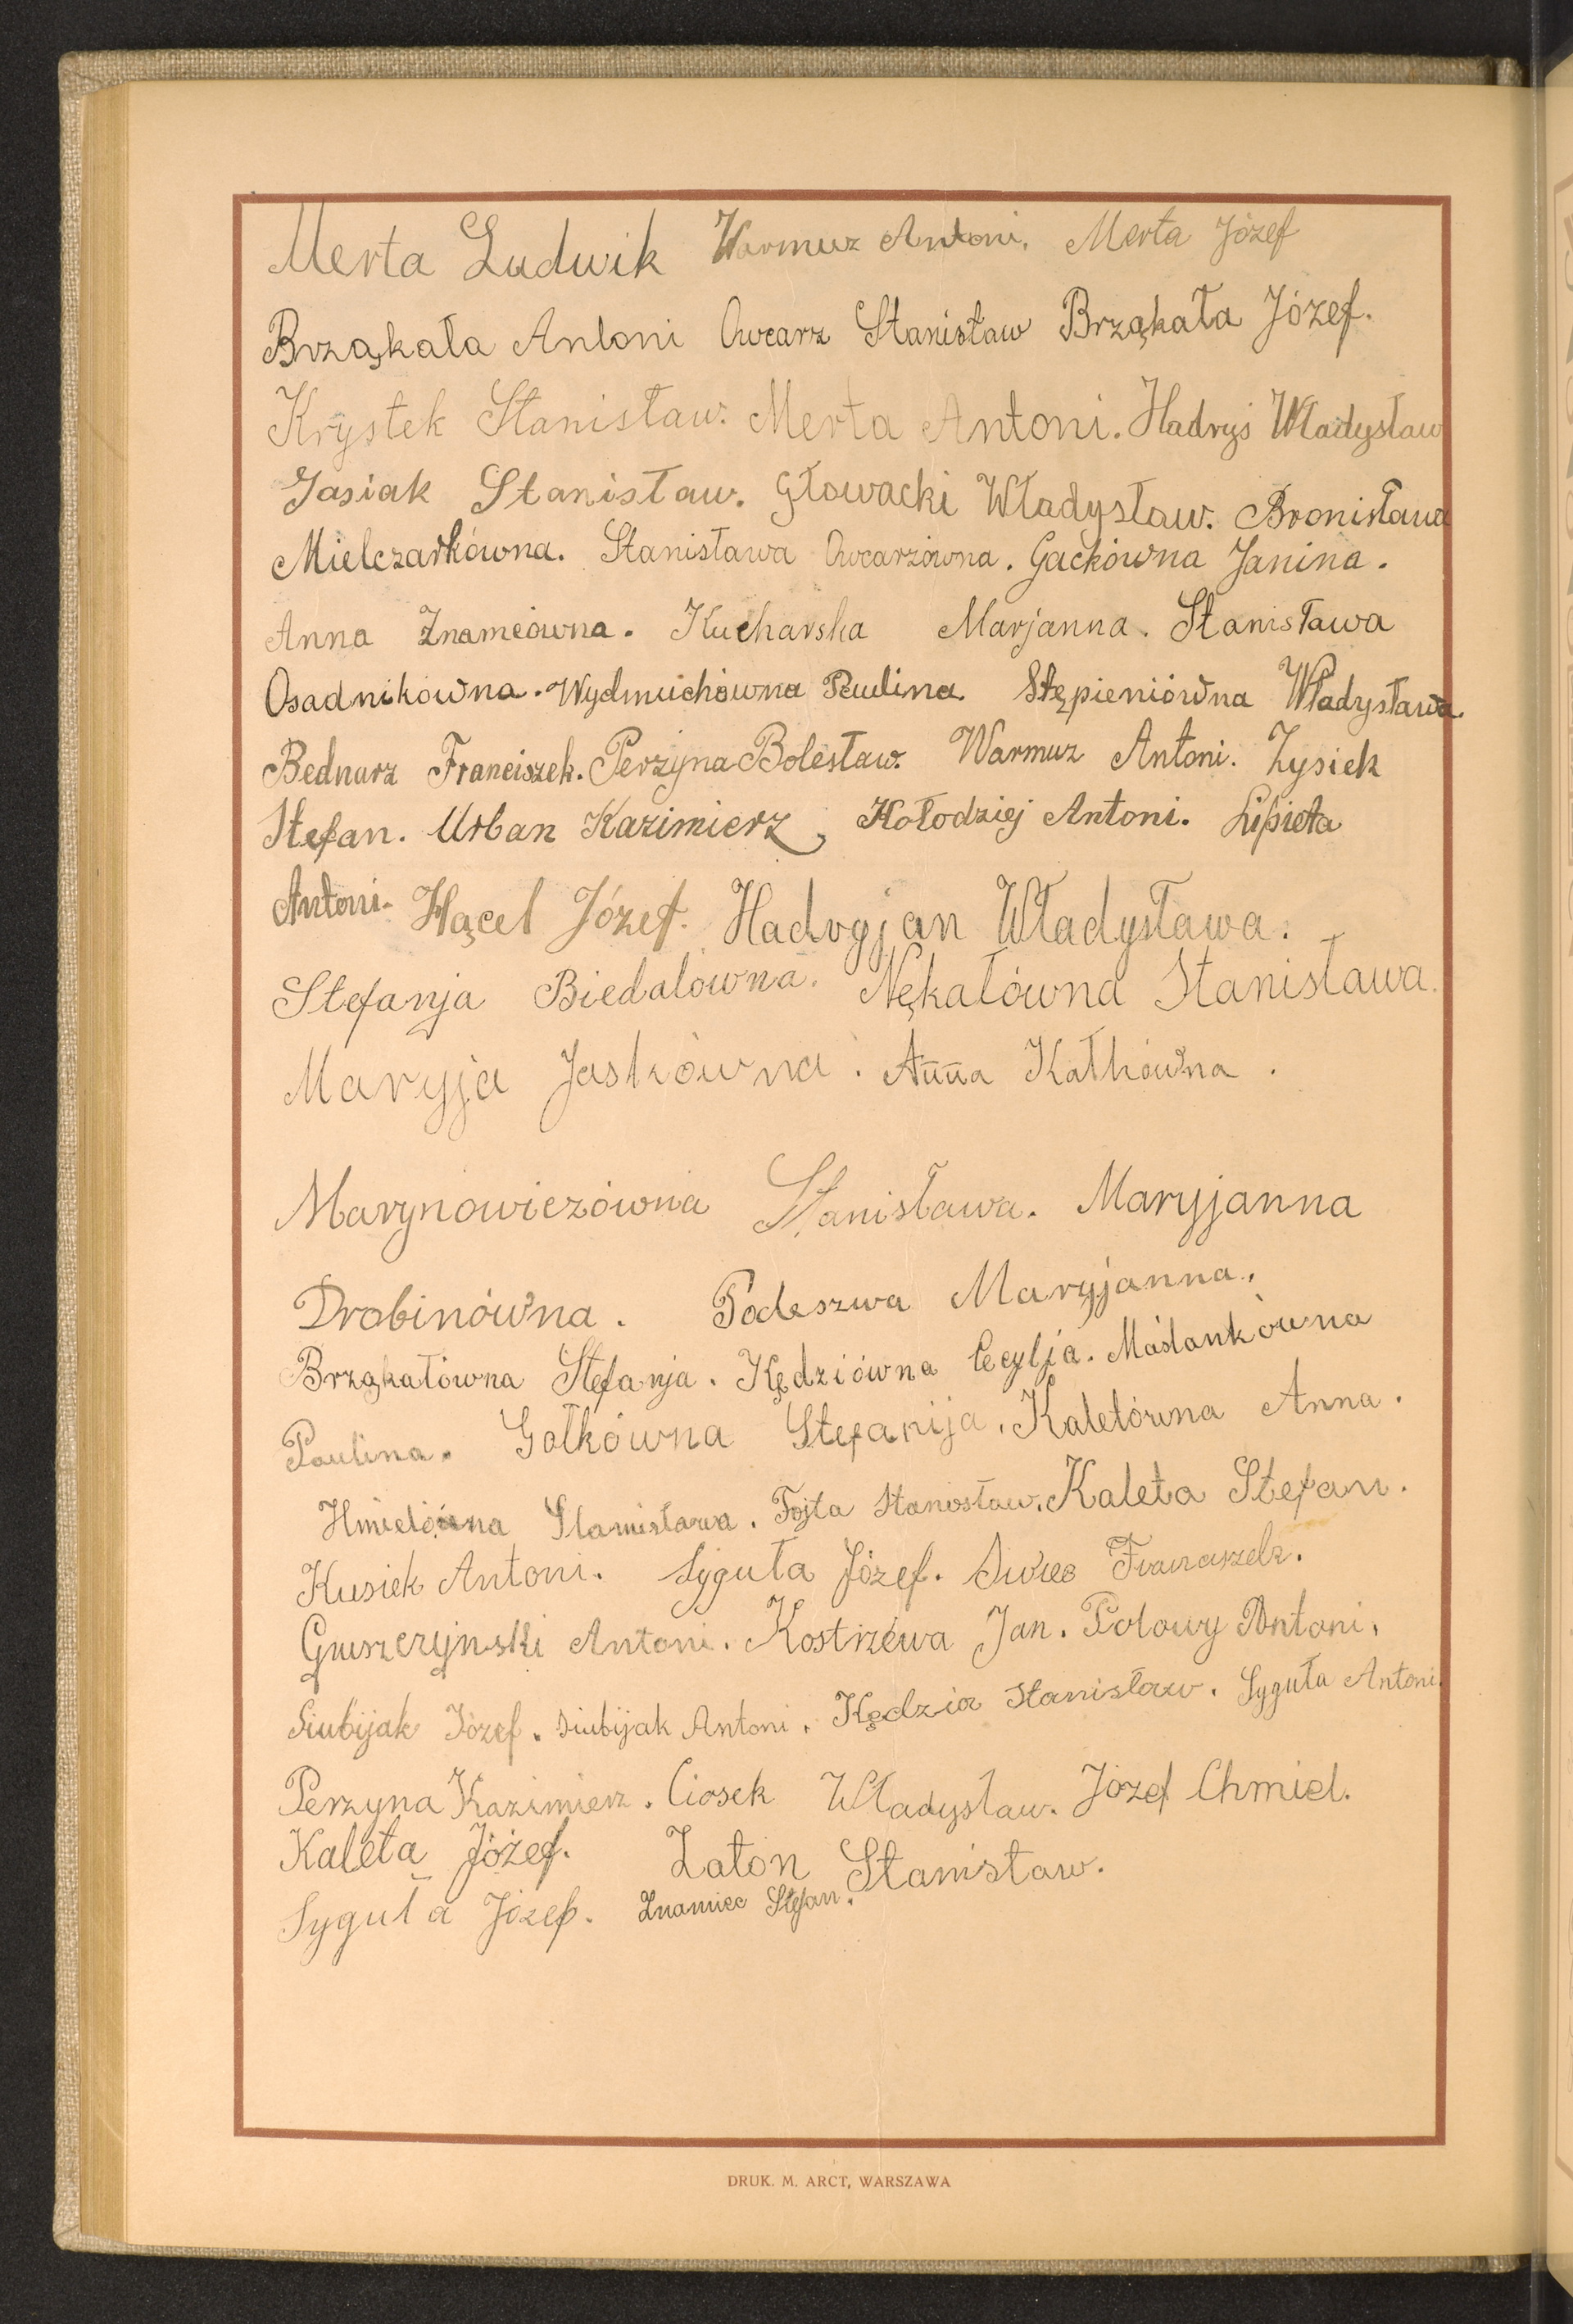 Merta Ludwik Warmuz Antoni. Merta Józef
Brząkała Antoni Owcarz Stanisław Brząkała Józef.
Krystek Stanisław. Merta Antoni. Hadryś Władysław
Jasiak Stanisław. Głowacki Władysław. Bronisława
Mielczarkówna. Stanisława Owcarzówna. Gackówna Janina.
Anna Znamcówna. Kucharska Marjanna. Stanisława
Osadnikówna. Wydmuchówna Paulina. Stępieniówna Władysława.
Bednarz Franciszek. Perzyna Bolesław. Warmuz Antoni. Zysiek
Stefan. Urban Kazimierz, Kołodziej Antoni. Lipieta
Antoni. Hącel Józef. Władysława.
Stefanja Biedalówna. Nękałówna Stanisława.
Maryja Jaskówna. Anna Kałkówna.
Marynowiczówna Stanisława. Maryjanna
Drobinówna. Podeszwa Maryjanna.
Brząkałówna Stefanja. Kędziówna Cecylja. Maślankówna
Paulina. Gołkówna Stefanija. Kaletówna Anna.
Hmielówna Stanisława. Fojta Stanisław. Kaleta Stefan.
Kusiek Antoni. Syguła Józef. Franciszek.
Antoni. Kostrzewa Jan. Polowy Antoni.
Siubijak Józef. Siubijak Antoni. Kędzia Stanisław. Syguła Antoni.
Perzyna Kazimierz. Ciosek Władysław. Józef Chmiel.
Kaleta Józef. Zaton Stanisław.
Syguła Józef. Znamiec Stefan.
DRUK. M. ARCT, WARSZAWA